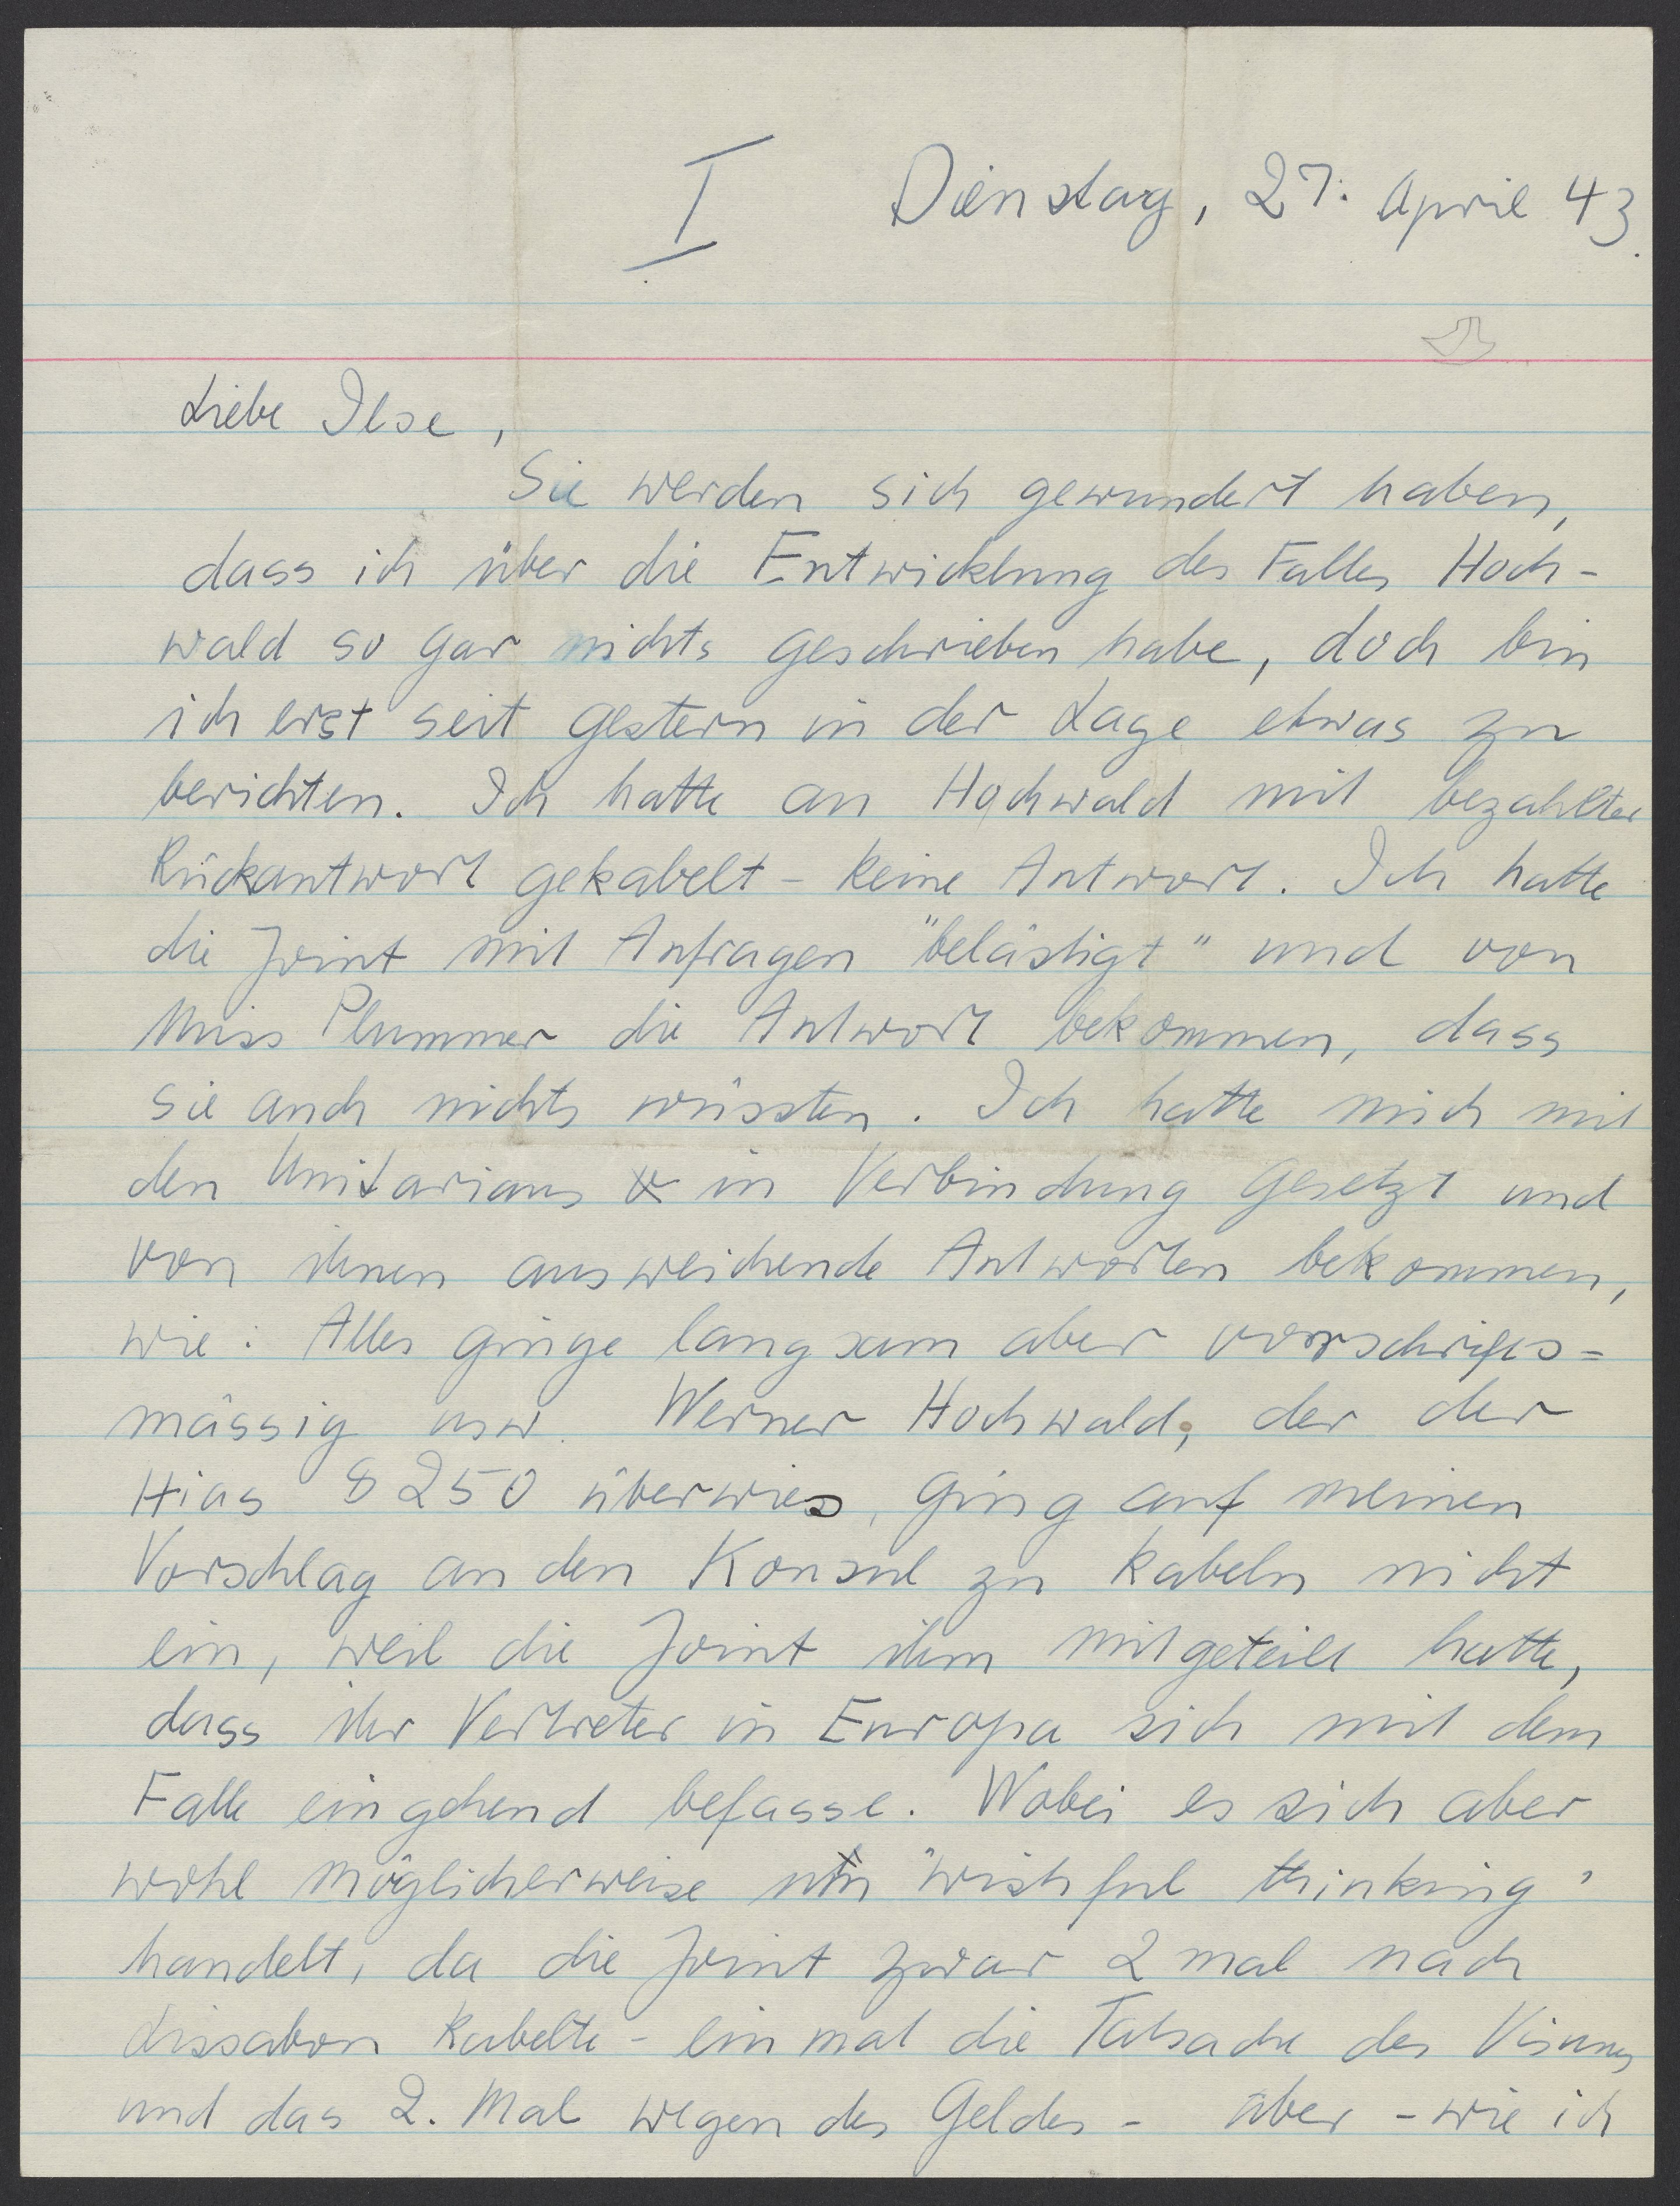 I
Dienstag, 27. April 43.
Liebe Ilse,
Sie werden sich gewundert haben,
dass ich über die Entwicklung des Falles Hoch-
wald so gar nichts geschrieben habe, doch bin
ich erst seit gestern in der Lage etwas zu
berichten. Ich hatte an Hochwald mit bezahlter
Rückantwort gekabelt - keine Antwort. Ich hatte
die Joint mit Anfragen "belästigt" und von
Miss Plummer die Antwort bekommen, dass
sie auch nichts wüssten. Ich hatte mich mit
den Unitarians in Verbindung gesetzt und
von ihnen ausweichende Antworten bekommen,
wie: Alles ginge langsam aber vorschrifts=
mässig usw. Werner Hochwald, der der
Hias $ 250 überwies, ging auf meinen
Vorschlag an den Konsul zu kabeln nicht
ein, weil die Joint ihm mitgeteilt hatte,
dass ihr Vertreter in Europa sich mit dem
Falle eingehend befasse. Wobei es sich aber
wohl möglicherweise um "wishful thinking"
handelt, da die Joint zwar 2 mal nach
Lissabon kabelte - einmal die Tatsache des Visums
und das 2. Mal wegen des Geldes - aber - wie ich